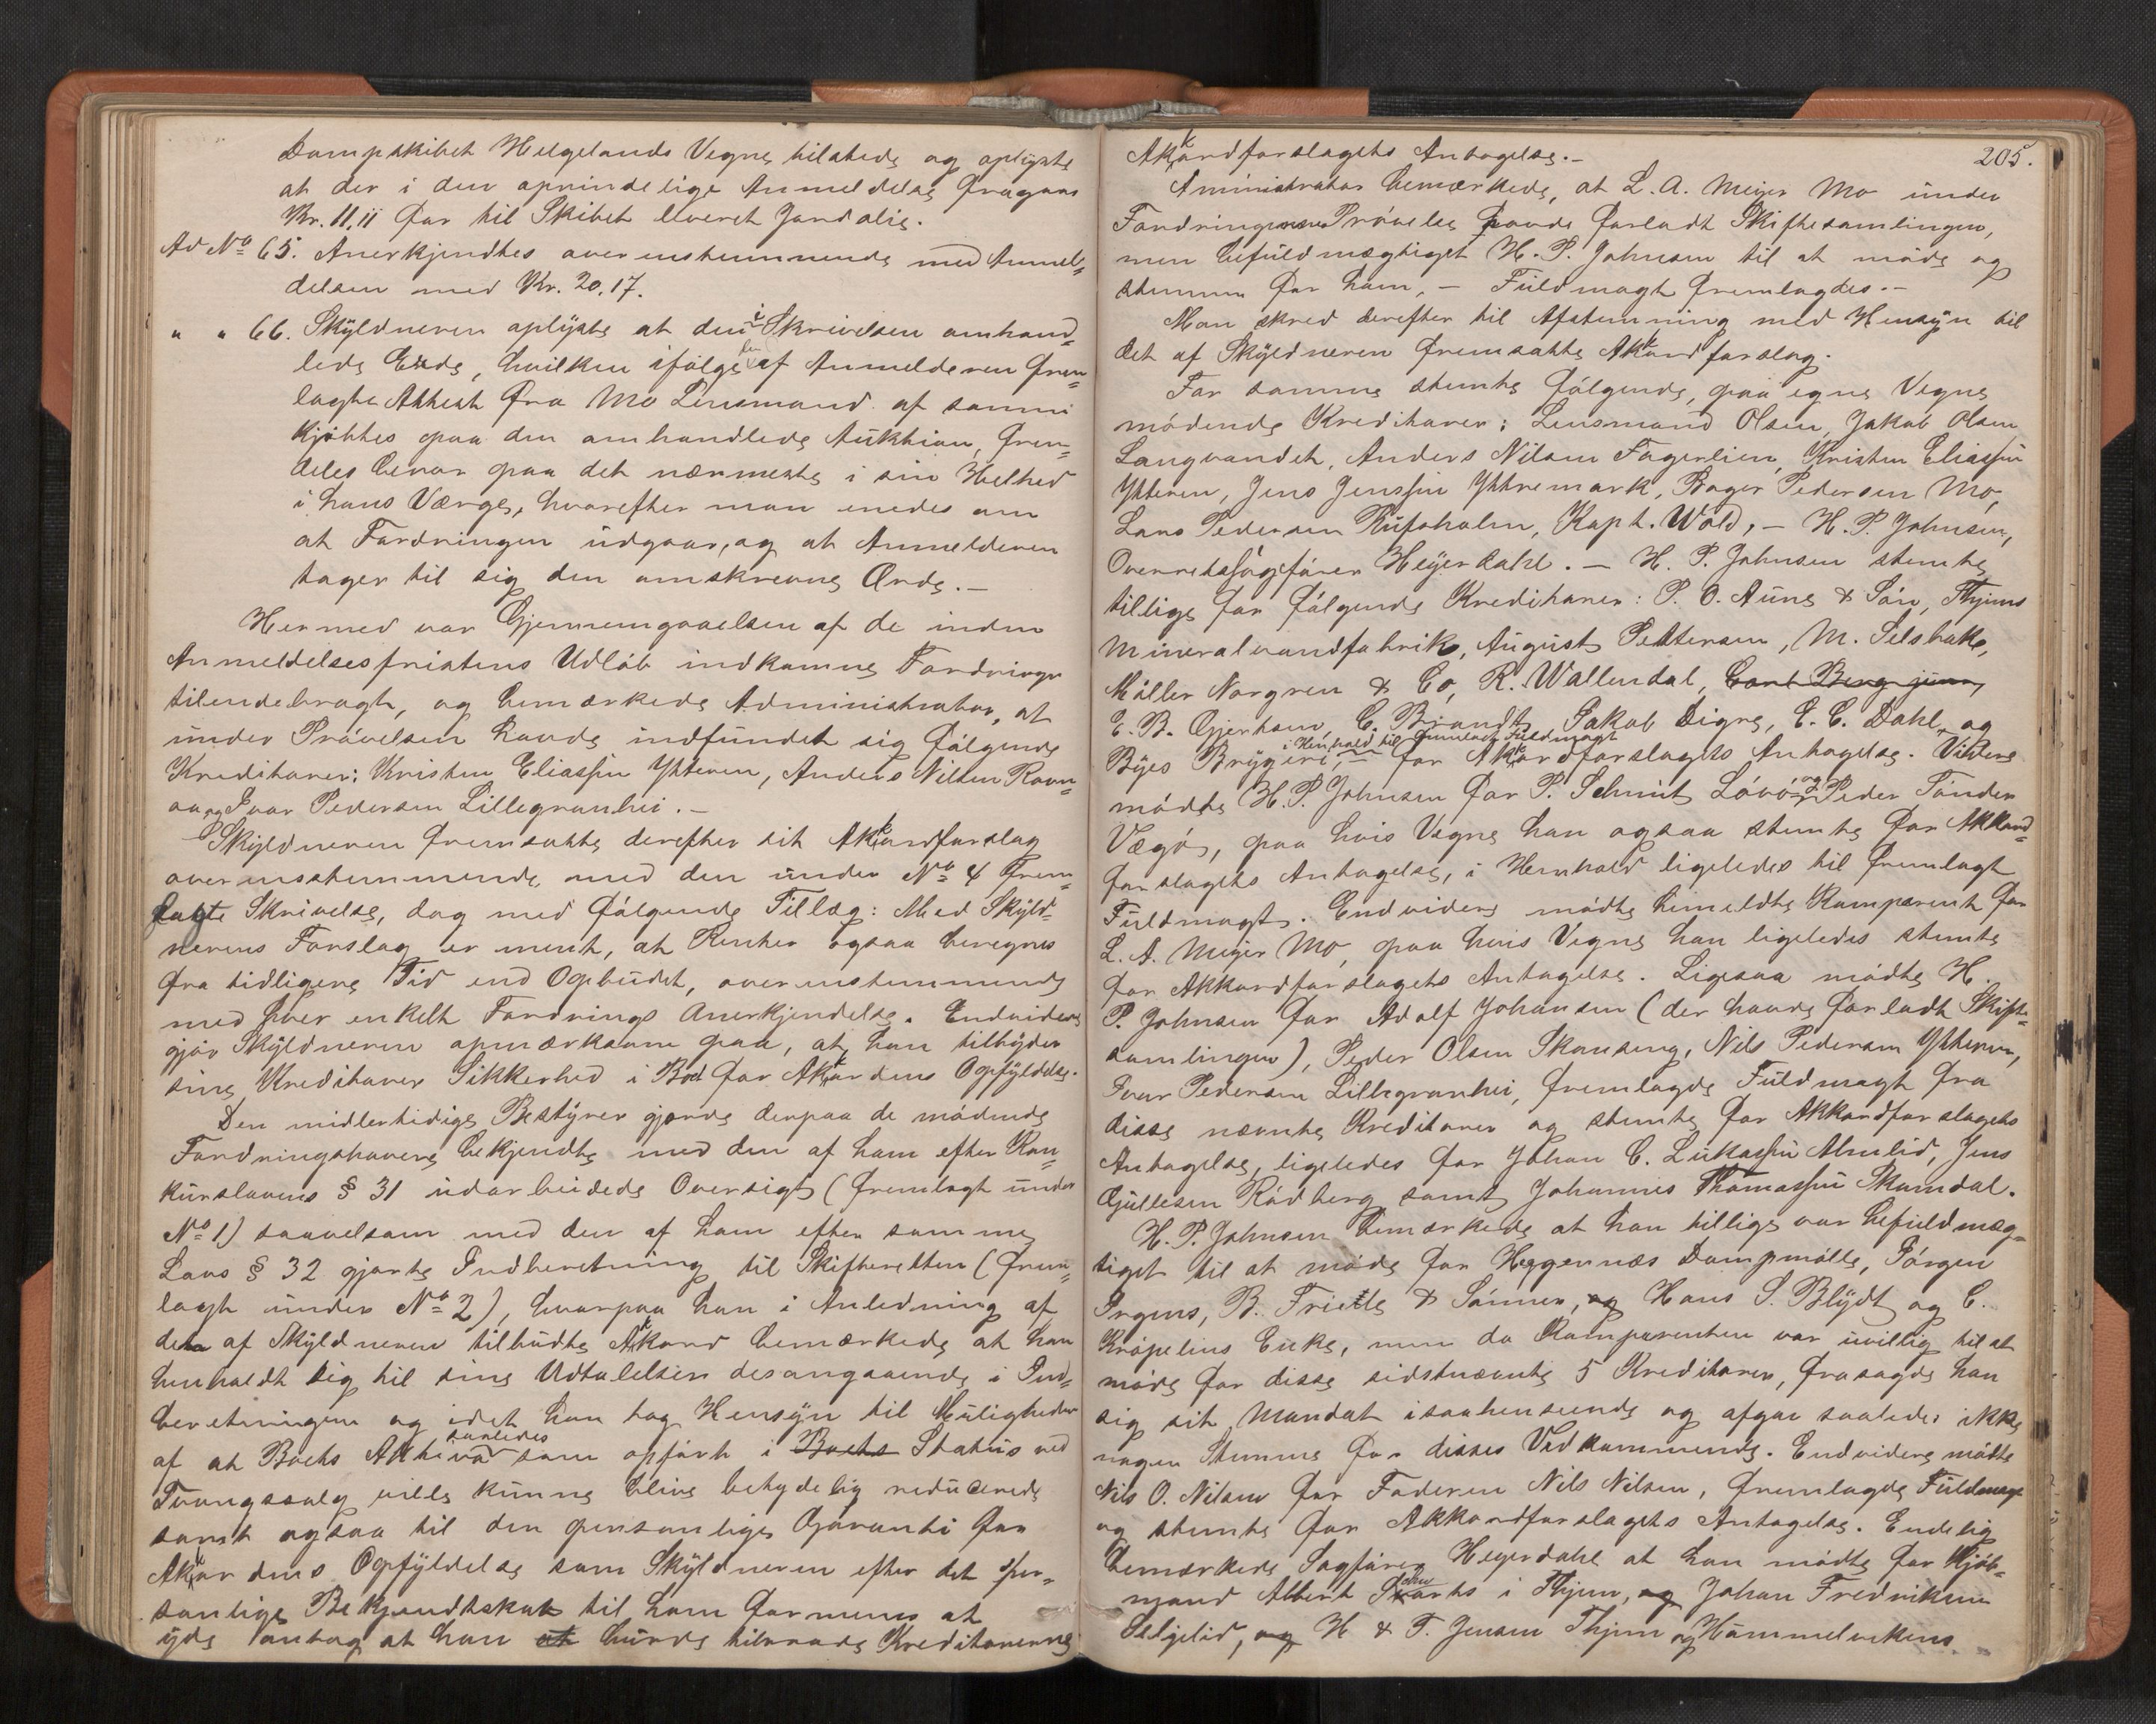 Dampskibet Helgelands Vegne tilstede og oplyste
at der i den oprindelige Anmeldelse fragaar
Kr. 11,11 for til Skibet leveret Jordolie.
Ad No 65. Anerkjendtes overensstemmende med Anmel=
delsen med Kr. 20,17.
" " 66. Skyldneren oplyste at den i Skrivelsen omhand=
lede Ende, hvilken ifølge den af Anmelderen frem=
lagte Attest fra Mo Lensmand af samme
kjøbtes paa den omhandlede Auktion, frem=
deles beror paa det nærmeste i sin Helhed
i hans Værge, hvorefter man enedes om
at Fordringen udgaar, og at Anmelderen
tager til sig den omskrevne Ende.-
Hermed var Gjennemgaaelsen af de inden
Anmeldelsesfristens Udløb indkomne Fordringer
tilendebragt, og bemærkede Administrator, at
under Prøvelsen havde indfundet sig følgende
Kreditorer: Kristen Eliassen Ytteren, Anders Nilsen Ravn=
aa og Ivar Pedersen Lillegranhei.-
Skyldneren fremsatte derefter sit Akkordforslag
overensstemmende med den under No 4 frem=
lagte Skrivelse, dog med følgende Tillæg: Med Skyld=
nerens Forslag er ment, at Renter ogsaa beregnes
fra tidligere Tid end Opbudet, overensstemmende
med hver enkelt Fordrings Anerkjendelse. Endvidere
gjør Skyldneren opmærksom paa, at han tilbyder
sine Kreditorer Sikkerhed i Boet for Akkordens Opfyldelse.
Den midlertidige Bestyrer gjorde derpaa de mødende
Fordringshavere bekjendte med den af ham efter Kon=
kurslovens § 31 udarbeidede Oversigt (fremlagt under
No 1) saavelsom med den af ham efter samme
Lovs § 32 gjorte Indberetning til Skifteretten (frem=
lagt under No 2), hvorpaa han i Anledning af
den af Skyldneren tilbudte Akkord bemærkede at han
henholdt sig til sine Udtalelser desangaaende i Ind=
beretningen og idet han tog Hensyn til Muligheden
af at Boets Aktiva saaledes som opført i Boets Status ved
Tvangssalg vilde kunne blive betydelig reducerede
samt ogsaa til den personlige Garanti for
Akkordens Opfyldelse som Skyldneren efter det per=
sonlige Bekjendtskab til ham formenes at
yde antog at han at burde tilraade Kreditorerne
205.
Akkordforslagets Antagelse.-
Aministrator bemærkede, at L. A. Meyer Mo under
Fordringernes Prøvelse havde forladt Skiftesamlingen,
men befuldmægtiget H. P. Johnsen til at møde og
stemme for ham, - Fuldmagt fremlagdes.-
Man skred derefter til Afstemning med Hensyn til
det af Skyldneren fremsatte Akkordforslag.
For samme stemte følgende, paa egne Vegne
mødende Kreditorer: Lensmand Olsen, Jakob Olsen
Langvandet, Anders Nilsen Fagerlien, Kristen Eliassen
Ytteren, Jens Jenssen Yttremark, Peder Pedersen Mo,
Lars Pedersen Rufsholm, Kapt. Wold, - H. P. Johnsen,
Overretssagfører Heyerdahl. - H. P. Johnsen stemte
tillige for følgende Kreditorer: P. O. Aune & Søn, Thjems
Mineralvandfabrik, August Pettersen, M. Selsbak,
Møller Norgren & Co, R. Wallendal, Carl Berg junr,
E. B. Gjertsen, C. Brandt, Jakob Digre, E. C. Dahl, og
i Henhold til fremlagt Fuldmagt
Byes Bryggeri, - for Akkordforslagets Antagelse. Videre
mødte H. P. Johnsen for P. Schmit Løvø og Peder Tønder
Vægø, paa hvis Vegne han ogsaa stemte for Akkord=
forslagets Antagelse, i Henhold ligeledes til fremlagt
Fuldmagt. Endvidere mødte bemeldte Komparent for
L. A. Meyer Mo, paa hvis Vegne han ligeledes stemte
for Akkordforslagets Antagelse. Ligesaa mødte H.
P. Johnsen for Adolf Johansen (der havde forladt Skifte=
samlingen), Peder Olsen Skonseng, Nils Pedersen Ytteren,
Ivar Pedersen Lillegranhei, fremlagde Fuldmagt fra
disse nævnte Kreditorer og stemte for Akkordforslagets
Antagelse, ligeledes for Johan C. Lukassen Almlid, Jens
Gullesen Rødberg samt Johannes Thomassen Skamdal.
H. P. Johnsen bemærkede at han tillige var befuldmæg=
tiget til at møde for Heggernæs Dampmølle, Jørgen
Irgens, B. Friele & Sønner, og Hans S. Blydt og C.
Krøpeliens Enke, men da Komparenten var uvillig til at
møde for disse sidstnævnte 5 Kreditorer, frasagde han
sig sit Mandat isaahenseende og afgav saaledes ikke
nogen Stemme for disses Vedkommende. Endvidere mødte
Nils O. Nilsen for Faderen Nils Nilsen, fremlagde Fuldmagt
og stemte for Akkordforslagets Antagelse. Endelig
bemærkede Sagfører Heyerdahl at han mødte for Kjøb=
mand Albert Schwartz i Thjem, og Johan Fredriksen
Selgelid, og H & F. Jensen Thjem og Hammelvikens